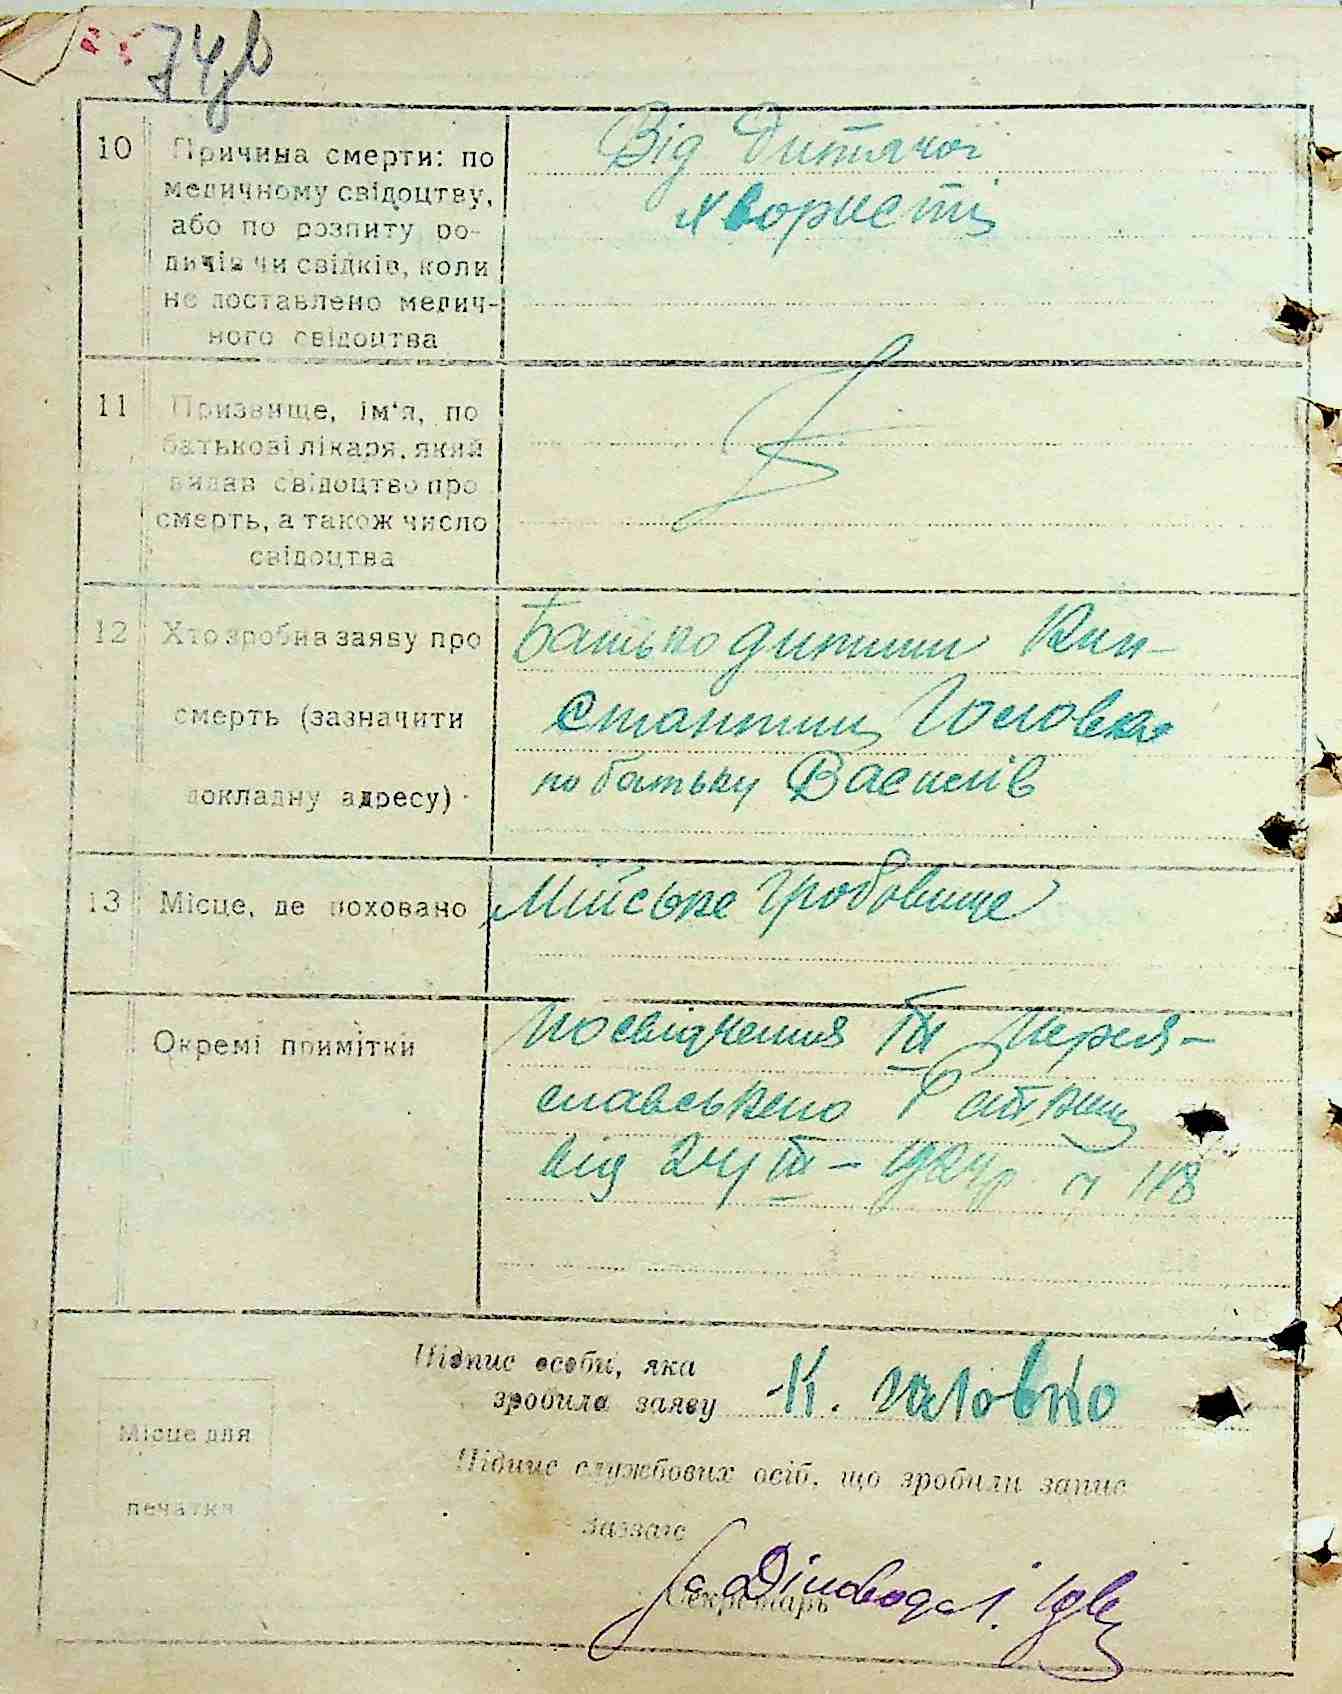 74
10 Причина смерти: по
медичному свідоцтву,
або по розпиту ро-
дичів чи свідків, коли
не доставлено медич-
ного свідоцтва
Від Дитячої
хвористі
11 Призвище, ім'я, по
батькові лікаря, який
видав свідоцтво про
смерть, а також число
свідоцтва
12 Хто зробив заяву про
смерть (зазначити
докладну адресу)
Батько дитини Кон-
стантин Головко
по батьку Василів
13 Місце, де поховано
Мійське гробовище
Окремі примітки
Посвідчення III Перея-
славського
від 24/III – № 118
Підпис особи, яка
зробила заяву К. Головко
Місце для
печатки
Підпис службових осіб, що зробили запис
Завзагс
Секретарь
Діловод